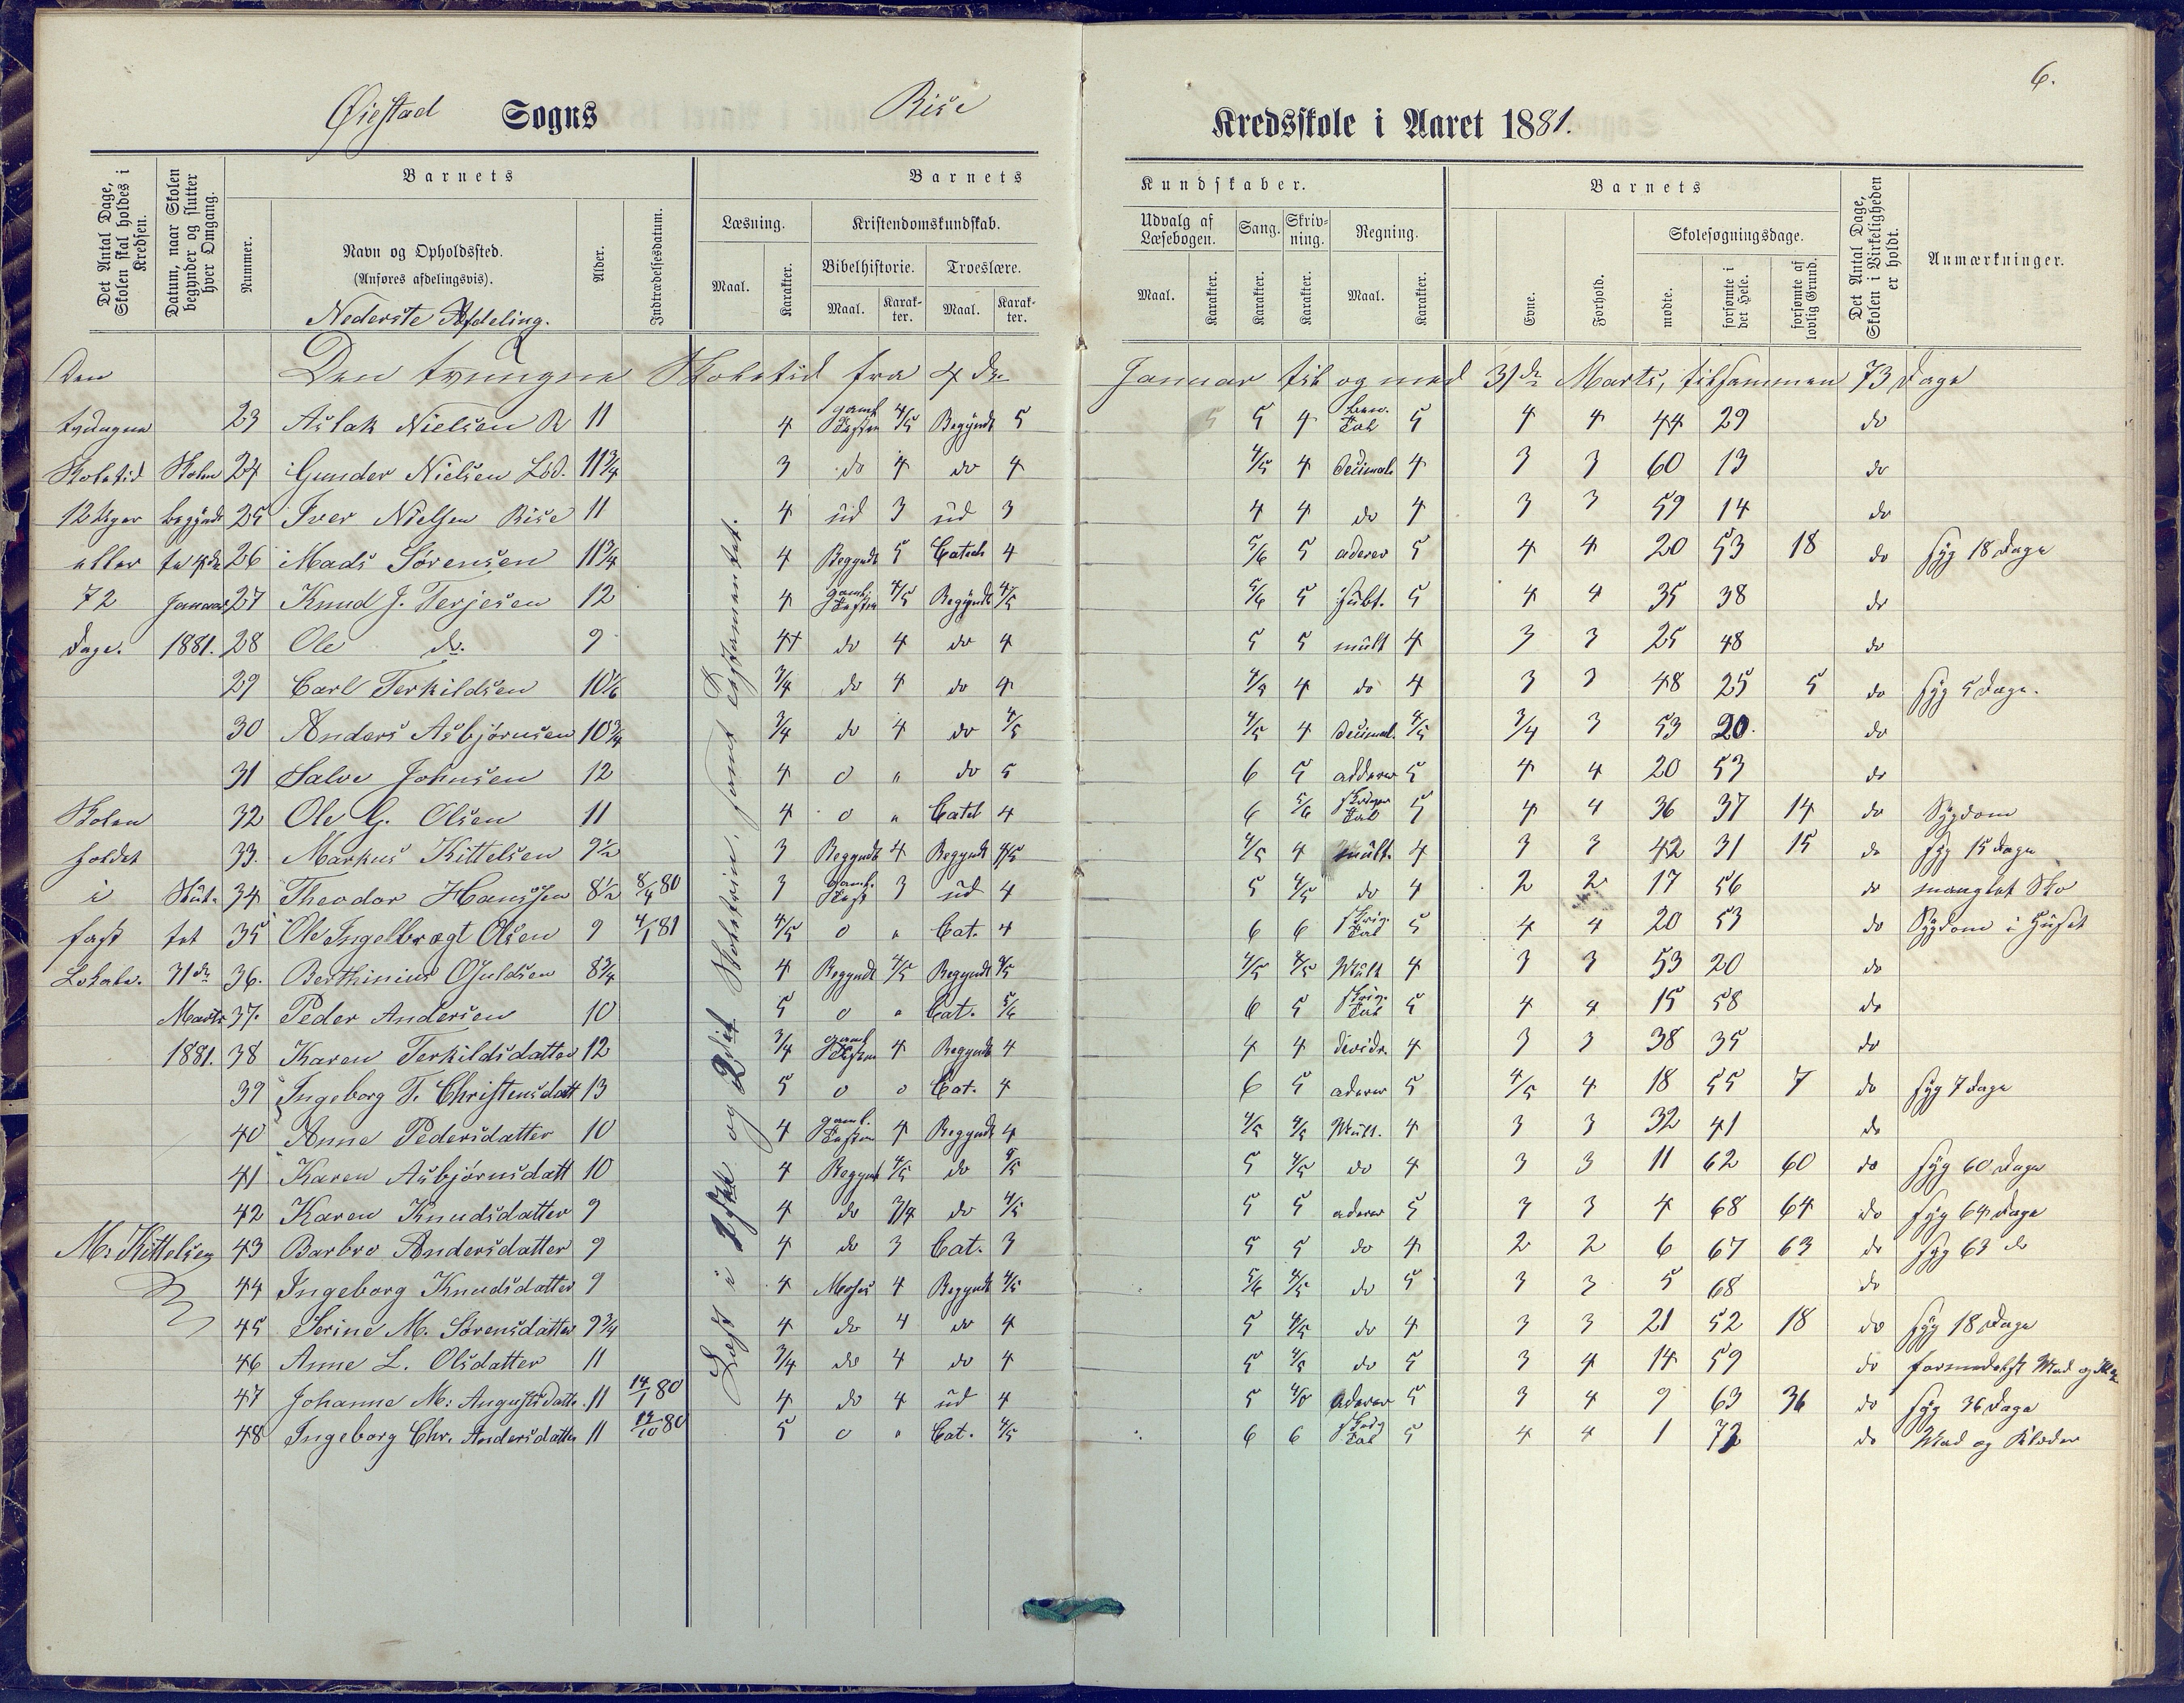 6.
Øiestad Sogns Rise Kredsskole i Aaret 1881.
Det Antal Dage, Skolen skal holdes i Kredsen.
Datum, naar Skolen begynder og slutter hver Omgang.
Barnets
Nummer.
Navn og Opholdssted.
(Anføres afdelingsvis).
Nederste Afdeling.
Alder.
Indtrædelsesdatum.
Barnets Kundskaber.
Læsning.
Maal.
Karakter.
Kristendomskundskab.
Bibelhistorie.
Maal.
Karakter.
Troeslære.
Maal.
Karakter.
Udvalg af Læsebogen.
Maal.
Karakter.
Sang.
Karakter.
Skrivning.
Karakter.
Regning.
Maal.
Karakter.
Barnets
Evne.
Forhold.
Skolesøgningsdage.
mødte.
forsømte i det Hele.
forsømte af lovlig Grund.
Det Antal Dage, Skolen i Virkeligheden er holdt.
Anmærkninger.
Den tvungne Skoletid fra 4de Januar til og med 31de Marts, tilsammen 73 Dage
Den tvungne Skoletid 12 Uger eller 72 Dage.
Skolen begyndt 4de Januar 1881.
Skolen holdt i fast Lokale.
Slut- tet 31de Marts 1881.
M. Kittelsen
Læst i 1ste og 2det Skoletrin, samt Testamentet.
23 Aslak Nielsen R 11 4 gaml. Testam 4/5 Begyndt 5 5 5 4 ben. Tal 5 4 4 44 29 do
24 Gunder Nielsen Lød. 11 3/4 3 do 4 do 4 4/5 4 decimal. 4 3 3 60 13 do
25 Iver Nielsen Rise 11 4 ud 3 ud 3 4 4 do 4 3 3 59 14 do
26 Mads Sørensen 11 3/4 4 Begyndt 5 Catech 4 5/6 5 aderer 5 4 4 20 53 18 do syg 18 Dage
27 Knud J. Terjesen 12 4 gaml. Testam 4/5 Begyndt 4/5 5/6 5 subt. 5 4 4 35 38 do
28 Ole do. 9 4+ do 4 do 4 5 5 mult 4 3 3 25 48 do
29 Carl Terkildsen 10 1/6 3/4 do 4 do 4 4/5 4 do 4 3 3 48 25 5 do syg 5 Dage.
30 Anders Asbjørnsen 10 3/4 3/4 do 4 do 4/5 4/5 4 decimal. 4/5 3/4 3 53 20. do
31 Salve Johnsen 12 4 0 " do 5 6 5 adderer 5 4 4 20 53 do
32 Ole G. Olsen 11 4 0 " Catch 4 6 5/6 skriver Tal 5 4 4 36 37 14 do Sygdom
33. Markus Kittelsen 9 1/2 3 Begyndt 4 Begyndt 4/5 4/5 4 mult. 4 3 3 42 31 15 do syg 15 Dage
34 Theodor Hanssen 8 1/2 8/4 80 3 gaml. Test 3 ud 4 5 4/5 do 4 2 2 17 56 do manglet Sko
35 Ole Ingelbregt Olsen 9 4/1 81 4/5 0 " Cat. 4 6 6 skriv. Tal 5 4 4 20 53 do Sygdom i Huset
36. Berthinius Guldsen 8 3/4 4 Begyndt 4/5 Begyndt 4/5 4/5 4/5 Mult 4 3 3 53 20 do
37. Peder Andersen 10 5 0 " Cat. 5/6 6 5 skriv. Tal 5 4 4 15 58 do
38 Karen Terkildsdatter 12 3/4 gaml Testam 4 Begyndt 4 4 4 divider 4 3 3 38 35 do
39 Ingeborg T. Christensdatt 13 5 0 0 Cat. 4 6 5 aderer 5 4/5 4 18 55 7 do syg 7 Dage
40 Anne Pedersdatter 10 4 gaml. Testam 4 Begyndt 4 4/5 4/5 Mult. 4 3 3 32 41 do
41 Karen Asbjørnsdatt 10 4 Begyndt 4/5 do 4/5 5 4/5 do 4 3 3 11 62 60 do syg 60 Dage
42 Karen Knudsdatter 9 4 do 3/4 do 4/5 5 5 aderer 5 3 3 4 68 64 do syg 64 Dage
43 Barbro Andersdatter 9 4 do 3 Cat. 3 5 5 do 4 2 2 6 67 63 do syg 63 do
44 Ingeborg Knudsdatter 9 4 Moses 4 Begyndt 4/5 5/6 4/5 do 5 3 3 5 68 do
45 Serine M. Sørensdatter 9 3/4 4 do 4 do 4 5 4/5 do 4 3 3 21 52 18 do syg 18 Dage
46 Anne L. Olsdatter 11 3/4 do 4 do 4 5 4/5 do 5 3 4 14 59 do formedelst Mad og
47 Johanne M. Augustsdatt. 11 14/1 80 4 do 4 ud 4 5 4/5 aderer 5 3 4 9 63 36 do syg 36 Dage
48 Ingeborg Chr. Andersdatter 11 14/10 80 5 0 " Cat. 4/5 6 6 skriv Tal 5 4 4 1 72 do Mad og Klæder